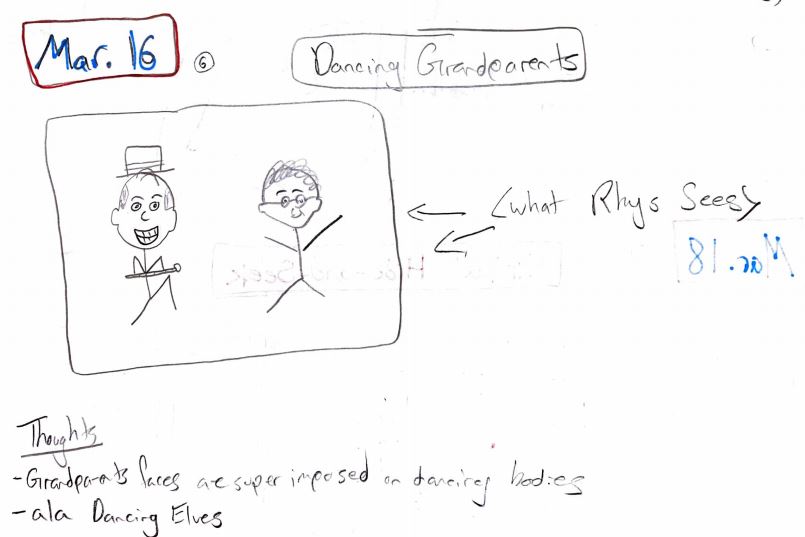 Mar. 16
6
Dancing Grandparents
<what Rhys Sees>
Mar. 18
Hide and Seek
Thoughts
- Grandparents faces are super imposed on dancing bodies
- ala Dancing Elves